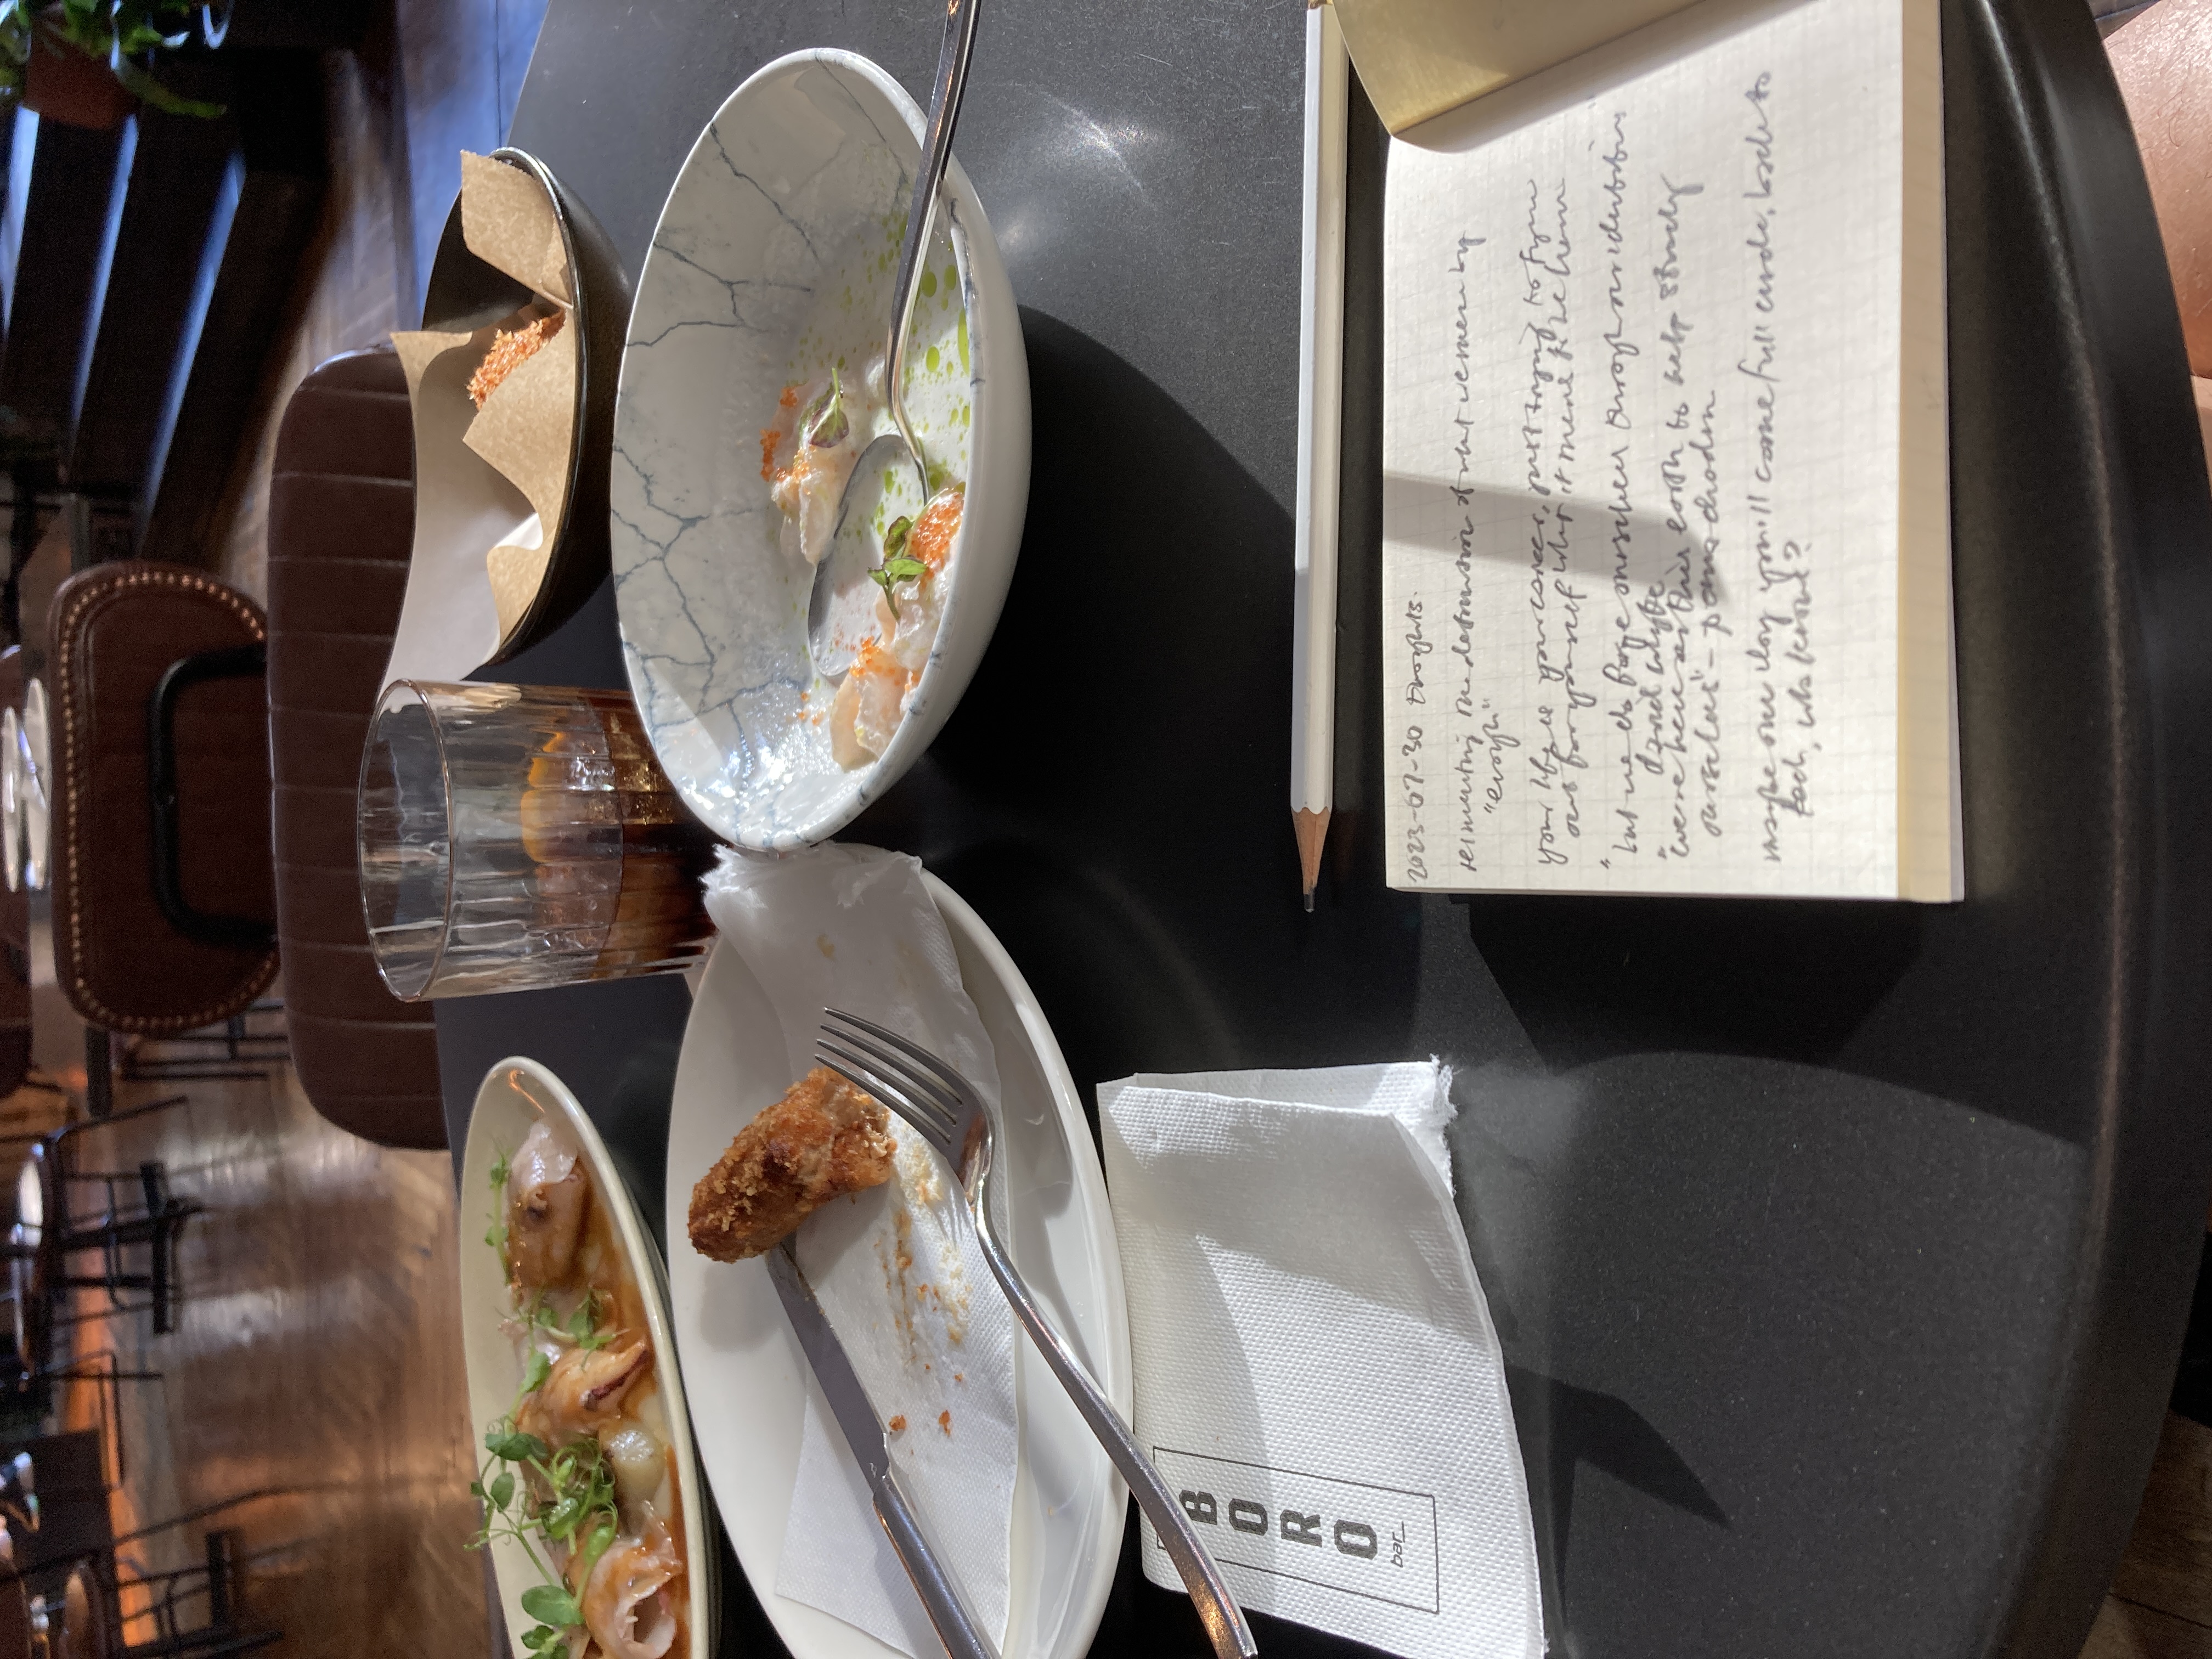 BORO
bar_
2023-07-30 thoughts.
the definition of what we mean by
"enough"
your life is your career, just trying to figure
out for yourself what it means to be human
"but we do forge ourselves through our identities"
david whyte
"we're here on this earth to help study
ourselves" - pema chodron
maybe one day you'll come full circle, back to
tech, who knows?